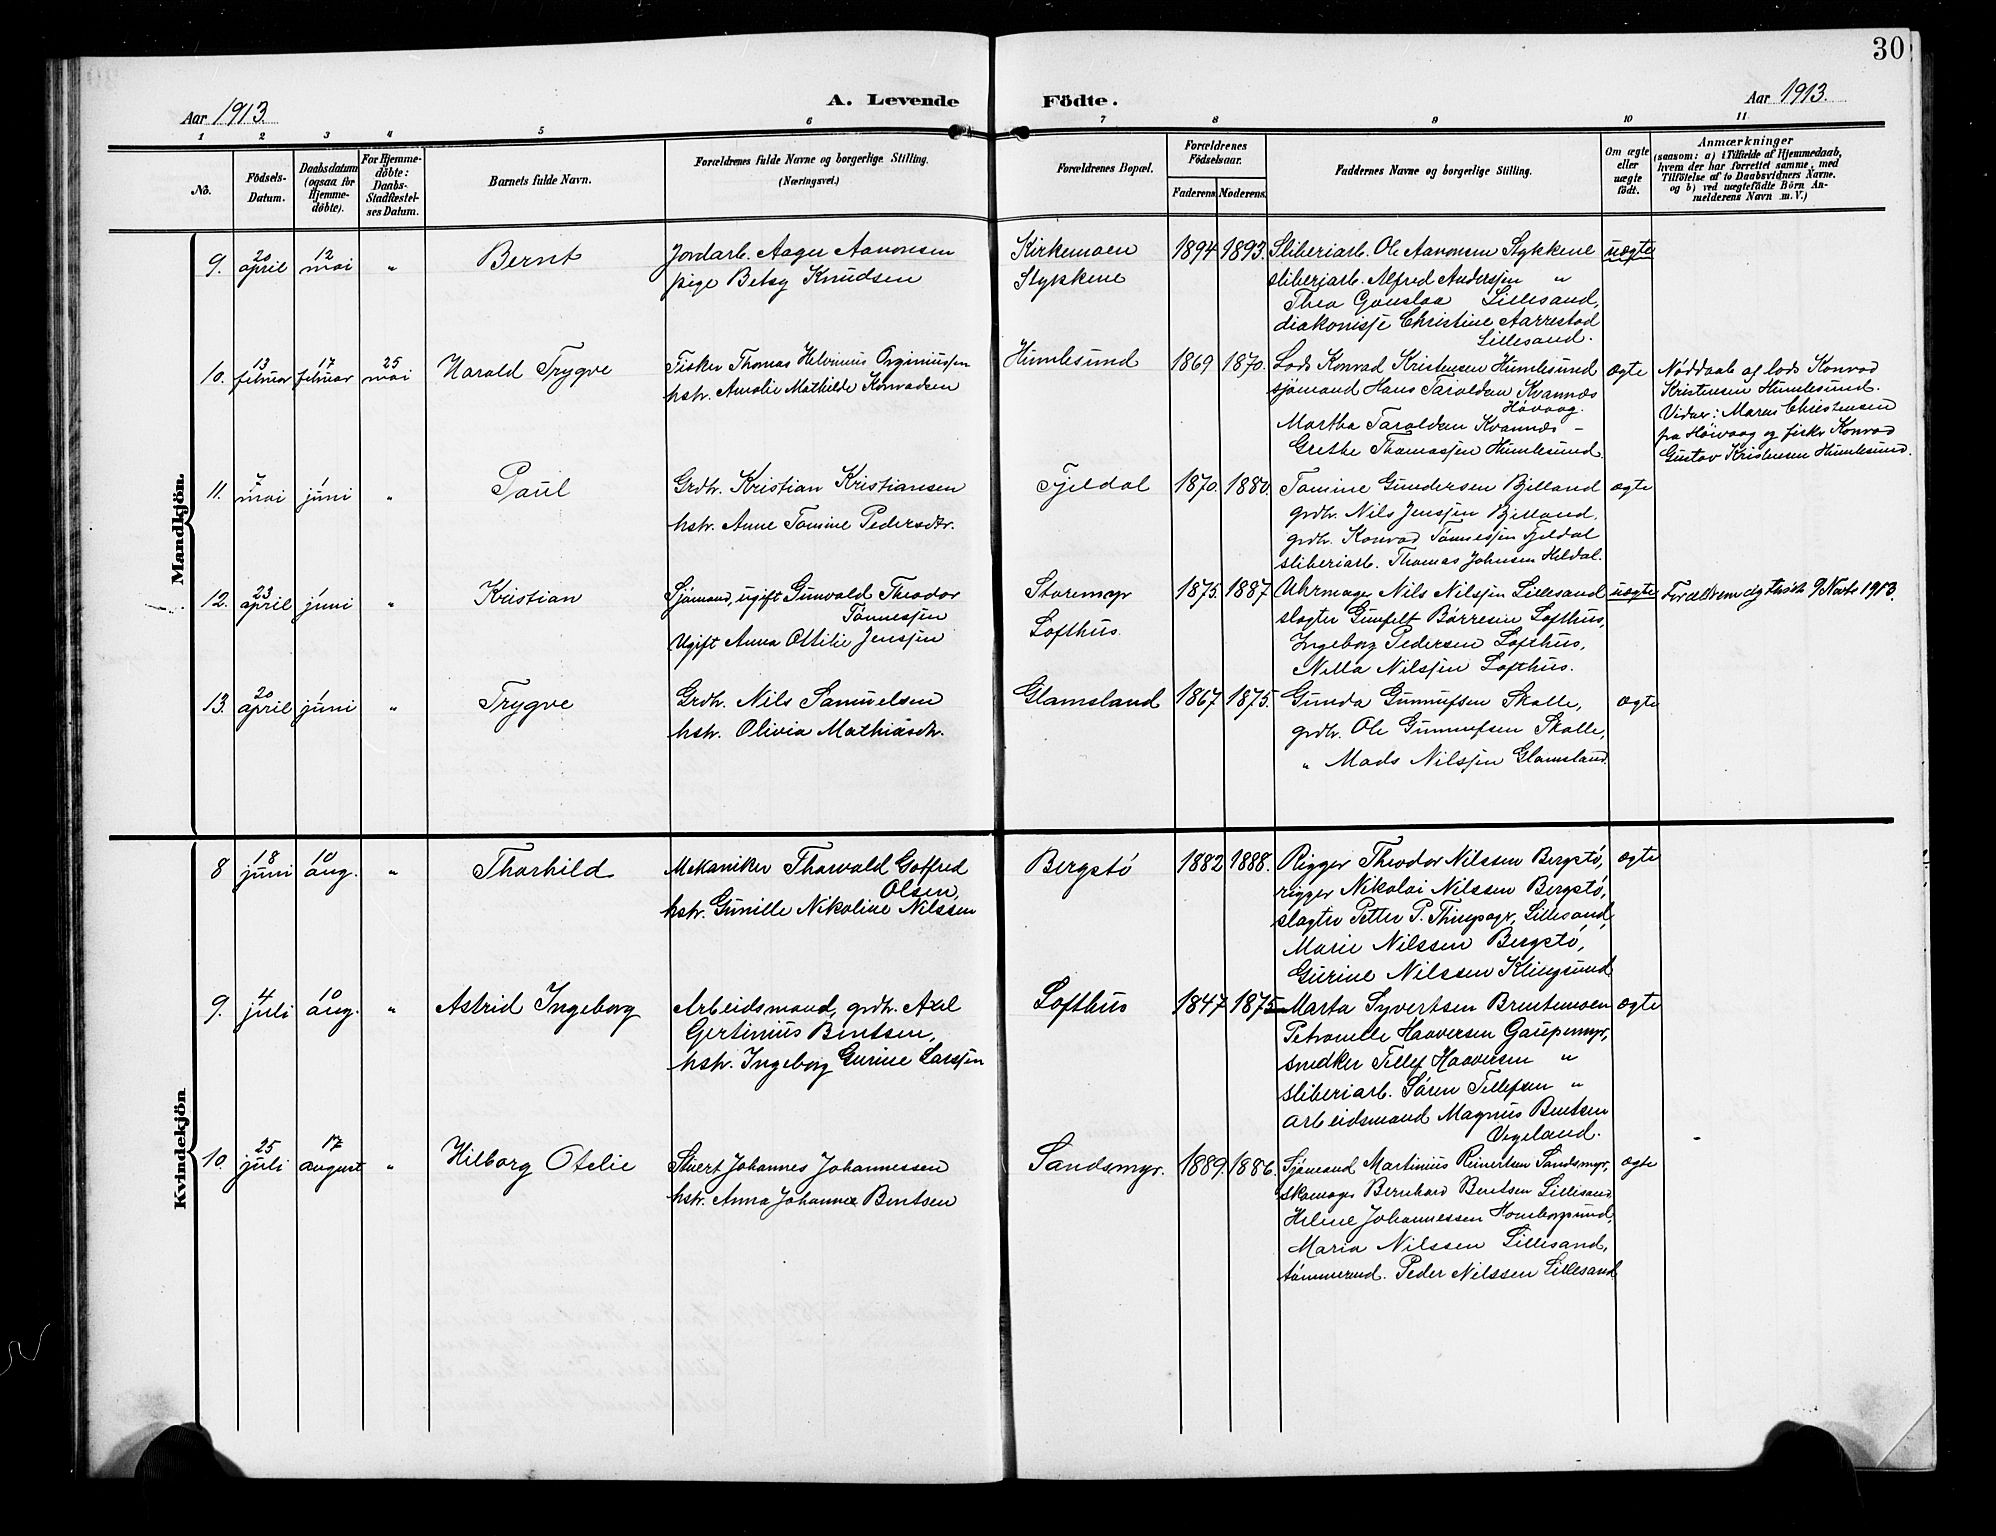 30
Aar 1913.
A. Levende
Födte.
Aar 1913.
1 2 3 4 5 6 7 8 9 10 11
No.
Födsels-Datum.
Daabsdatum (ogsaa for Hjemme-døbte).
For Hjemme-døbte: Daabs-Stadfæstel-ses Datum.
Barnets fulde Navn.
Forældrenes fulde Navne og borgerlige Stilling. (Næringsvei.)
Forældrenes Bopæl.
Forældrenes Födselsaar.
Faderens Moderens.
Faddernes Navne og borgerlige Stilling.
Om ægte eller uægte født.
Anmærkninger
(saasom: a) i Tilfælde af Hjemmedaab,
hvem der har forrettet samme, med
Tilföielse af to Daabsvidners Navne.
og b) ved uægtefødte Börn An-
melderens Navn m. V.)
Mandkjön.
9. 20 april 12 mai " Bernt Jordarb. Aage Aanonsen Kirkemoen 1894 1893. Sliberiarb. Ole Aanonsen Stykkene uægte
pige Betsy Knudsen Stykkene sliberiarb. Alfred Anderssen "
Thea Gauslaa Lillesand,
diakonisse Christine Aarrestad
Lillesand.
10. 13 februar 17 februar 25 mai Harald Trygve Fisker Thomas Helvinius Orginiussen Humlesund 1869 1870. Lods Konrad Kristensen Humlesund ægte Nøddaab af lods Konrad
hstr. Amalie Mathilde Konradsen sjømand Hans Taraldsen Kvannæs Kristensen Humlesund.
Høvaag. Vidner: Maren Christensen
Martha Taraldsen Kvannæs – fra Høivaag og fisker Konrad
Grethe Thomassen Humlesund. Gustav Kristensen Humlesund.
11. 7 mai 1 juni " Paul Grdbr. Kristian Kristiansen Fjeldal 1870. 1880. Tomine Gundersen Bjelland ægte
hstr. Anne Tomine Pedersdtr. grdbr. Nils Jenssen Bjelland.
grdbr. Konrad Tønnessen Fjeldal
sliberiarb. Thomas Johnsen Heldal.
12. 23 april 1 juni " Kristian Sjømand, ugift Gunvald Theodor Storemyr 1875. 1887 Uhrmager Nils Nilssen Lillesand uægte
Tønnessen slagter Gunfelt Børresen Lofthus,
Ugift Anna Ottilie Jenssen Lofthus. Ingeborg Pedersen Lofthus,
Nilla Nilssen Lofthus.
13. 20 april 1 juni " Trygve Grdbr. Nils Samuelsen Glamsland 1867 1875. Gunda Gunnufsen Skalle, ægte
hstr. Olivia Mathiasdtr. grdbr. Ole Gunnufsen Skalle,
" Mads Nilssen Glamsland.
Kvindekjön
8 18 juni 10 aug. " Thorhild Mekaniker Thorvald Gotfred Bergstø 1882 1888. Rigger Theodor Nilssen Bergstø, ægte
Olsen, rigger Nikolai Nilssen Bergstø,
hstr. Gunille Nikoline Nilssen slagter Petter P. Lillesand,
Marie Nilssen Bergstø,
Gurine Nilssen Klingsund
9. 4 juli 10 aug. " Astrid Ingeborg Arbeidsmand, grdbr. Axel Lofthus 1847 1875 Marta Syvertsen Brentemoen ægte
Gertinius Bentsen, Petronelle Haaversen Gaupemyr,
hstr. Ingeborg Gurine Larssen snedker Tellef Haaversen "
sliberiarb. Søren Tellefsen "
arbeidsmand Magnus Bentsen
Vegeland.
10. 25 juli 17 august " Hilborg Otelie Stuert Johannes Johannessen Sandsmyr. 1889 1886. Sjømand Martinius Reinertsen Sandsmyr, ægte
hstr. Anna Johanne Bentsen skomager Bernhard Bentsen Lillesand
Heline Johannessen Homborsund,
Maria Nilssen Lillesand,
tømmermd. Peder Nilssen Lillesand